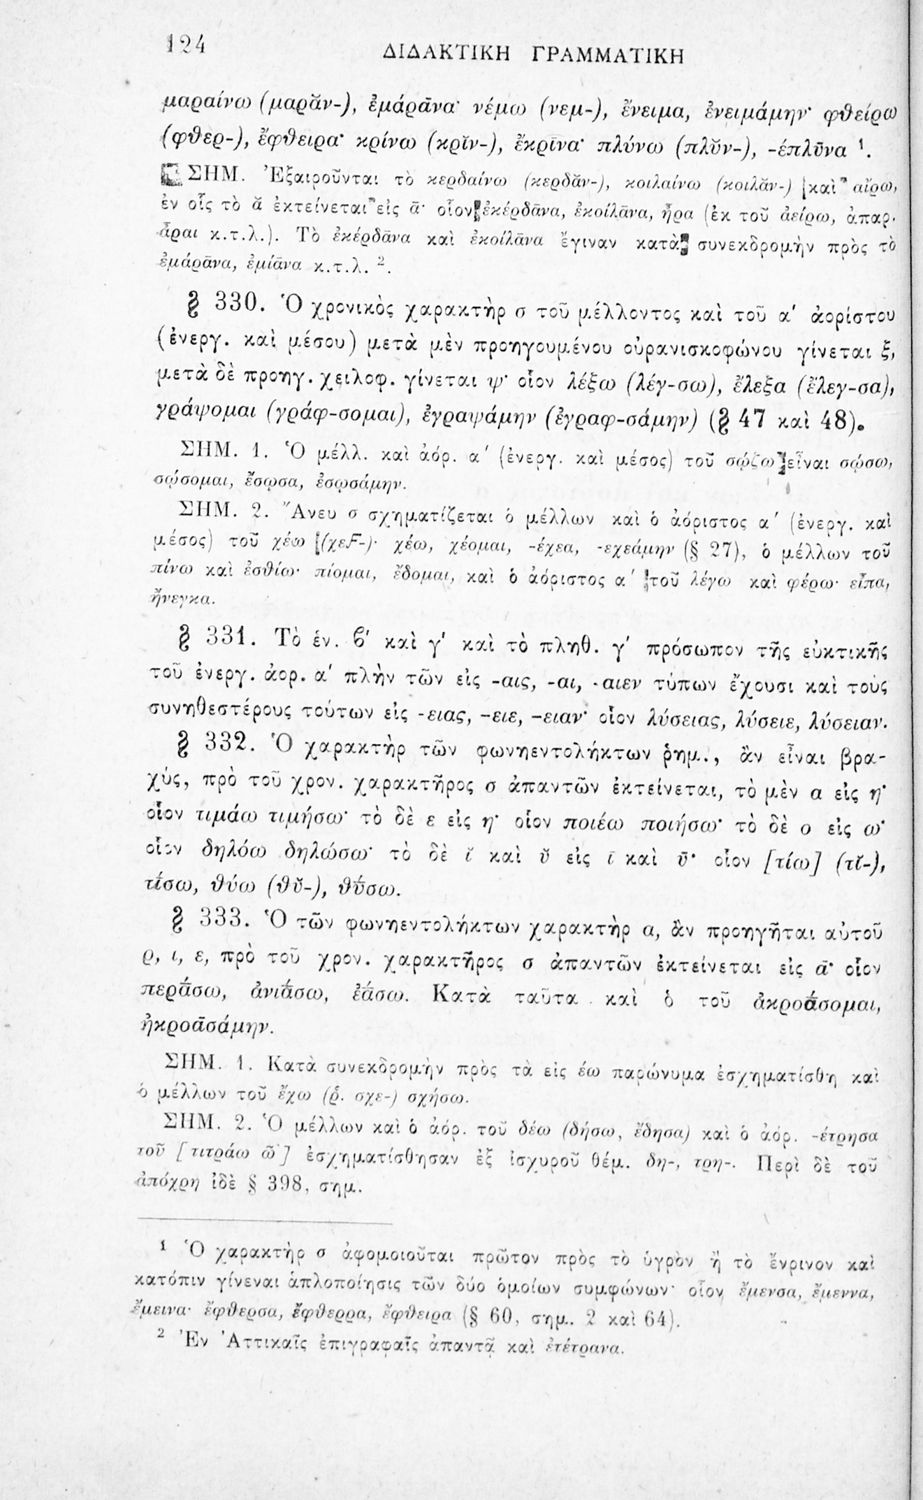 124
ΔΙΔΑΚΤΙΚΗ ΓΡΑΜΜΑΤΙΚΗ
μαραίνω (μαρᾰν-), ἐμάρᾱνα· νέμω (νεμ-), ἔνειμα, ἐνειμάμην· φθείρω
(φθερ-), ἔφθειρα· κρίνω (κρῐν-), ἔκρῑνα· πλύνω (πλῠν-), -έπλῡνα ¹.
ΣΗΜ. Ἐξαιροῦνται τὸ κερδαίνω (κερδᾰν-), κοιλαίνω (κοιλᾰν-) καὶ αἴρω,
ἐν οἷς τὸ ᾰ ἐκτείνεται εἰς ᾱ· οἷον ἐκέρδᾱνα, ἐκοίλᾱνα, ἦρα (ἐκ τοῦ ἀείρω, ἀπαρ.
ἆραι κ.τ.λ.). Τὸ ἐκέρδᾱνα καὶ ἐκοίλᾱνα ἔγιναν κατὰ συνεκδρομὴν πρὸς τὸ
ἐμάρᾱνα, ἐμίᾱνα κ.τ.λ. ².
§ 330. Ὁ χρονικὸς χαρακτὴρ σ τοῦ μέλλοντος καὶ τοῦ α΄ ἀορίστου
(ἐνεργ. καὶ μέσου) μετὰ μὲν προηγουμένου οὐρανισκοφώνου γίνεται ξ,
μετὰ δὲ προηγ. χειλοφ. γίνεται ψ· οἷον λέξω (λέγ-σω), ἔλεξα (ἔλεγ-σα),
γράψομαι (γράφ-σομαι), ἐγραψάμην (ἐγραφ-σάμην) (§ 47 καὶ 48).
ΣΗΜ. 1. Ὁ μέλλ. καὶ ἀόρ. α΄ (ἐνεργ. καὶ μέσος) τοῦ σῴζω εἶναι σώσω,
σώσομαι, ἔσωσα, ἐσωσάμην.
ΣΗΜ. 2. Ἄνευ σ σχηματίζεται ὁ μέλλων καὶ ὁ ἀόριστος α΄ (ἐνεργ. καὶ
μέσος) τοῦ χέω (χεF-)· χέω, χέομαι, -έχεα, -εχεάμην (§ 27), ὁ μέλλων τοῦ
πίνω καὶ ἐσθίω· πίομαι, ἔδομαι, καὶ ὁ ἀόριστος α΄ τοῦ λέγω καὶ φέρω· εἶπα,
ἤνεγκα.
§ 331. Τὸ ἑν. ϐ΄ καὶ γ΄ καὶ τὸ πληθ. γ΄ πρόσωπον τῆς εὐκτικῆς
τοῦ ἐνεργ. ἀορ. α΄ πλὴν τῶν εἰς -αις, -αι, -αιεν τύπων ἔχουσι καὶ τοὺς
συνηθεστέρους τούτων εἰς -ειας, -ειε, -ειαν· οἷον λύσειας, λύσειε, λύσειαν.
§ 332. Ὁ χαρακτὴρ τῶν φωνηεντολήκτων ῥημ., ἂν εἶναι βρα-
χύς, πρὸ τοῦ χρον. χαρακτῆρος σ ἁπαντῶν ἐκτείνεται, τὸ μὲν α εἰς η·
οἷον τιμάω τιμήσω· τὸ δὲ ε εἰς η· οἷον ποιέω ποιήσω· τὸ δὲ ο εἰς ω·
οἷον δηλόω δηλώσω· τὸ δὲ ῐ καὶ ῠ εἰς ῑ καὶ ῡ· οἷον [τίω] (τῐ-),
τῑ́σω, θύω (θῠ-), θῡ́σω.
§ 333. Ὁ τῶν φωνηεντολήκτων χαρακτὴρ α, ἂν προηγῆται αὐτοῦ
ρ, ι, ε, πρὸ τοῦ χρον. χαρακτῆρος σ ἁπαντῶν ἐκτείνεται εἰς ᾱ· οἷον
περᾱ́σω, ἀνιᾱ́σω, ἐᾱ́σω. Κατὰ ταῦτα καὶ ὁ τοῦ ἀκροᾱ́σομαι,
ἠκροᾱσάμην.
ΣΗΜ. 1. Κατὰ συνεκδρομὴν πρὸς τὰ εἰς έω παρώνυμα ἐσχηματίσθη καὶ
ὁ μέλλων τοῦ ἔχω (ῥ. σχε-) σχήσω.
ΣΗΜ. 2. Ὁ μέλλων καὶ ὁ ἀόρ. τοῦ δέω (δήσω, ἔδησα) καὶ ὁ ἀόρ. -έτρησα
τοῦ [τιτράω ῶ] ἐσχηματίσθησαν ἐξ ἰσχυροῦ θέμ. δη-, τρη-. Περὶ δὲ τοῦ
ἀπόχρη ἰδὲ § 398, σημ.
¹ Ὁ χαρακτὴρ σ ἀφομοιοῦται πρῶτον πρὸς τὸ ὑγρὸν ἢ τὸ ἔνρινον καὶ
κατόπιν γίνεναι ἁπλοποίησις τῶν δύο ὁμοίων συμφώνων· οἷον ἔμενσα, ἔμεννα,
ἔμεινα· ἔφθερσα, ἔφθερρα, ἔφθειρα (§ 60, σημ. 2 καὶ 64).
² Ἐν Ἀττικαῖς ἐπιγραφαῖς ἀπαντᾷ καὶ ἐτέτρανα.